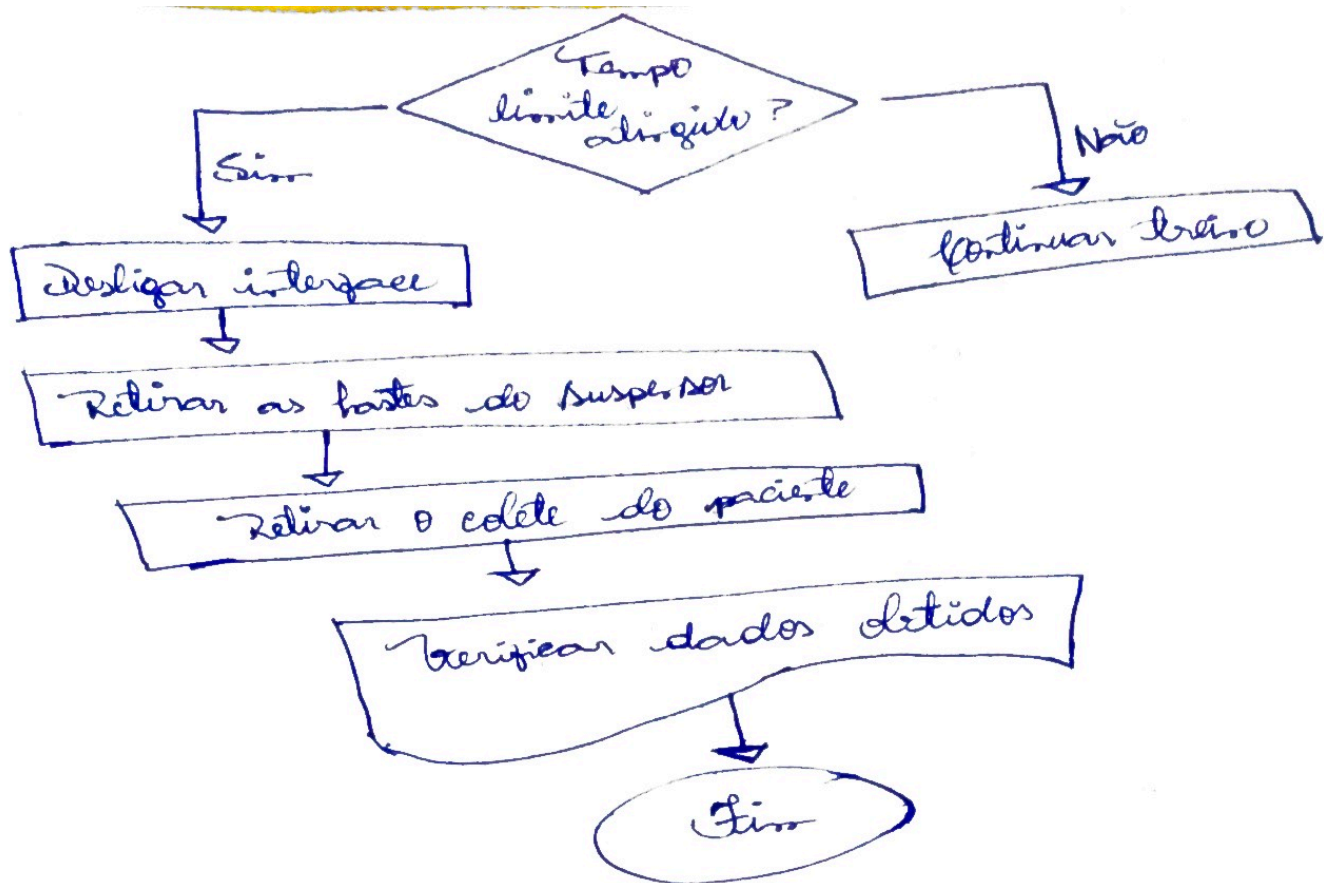 Tempo
limite
atingido?
Sim
Não
Desligar interface
Continuar treino
Retirar as hastes do suspensor
Retirar o colete do paciente
Verificar dados obtidos
Fim